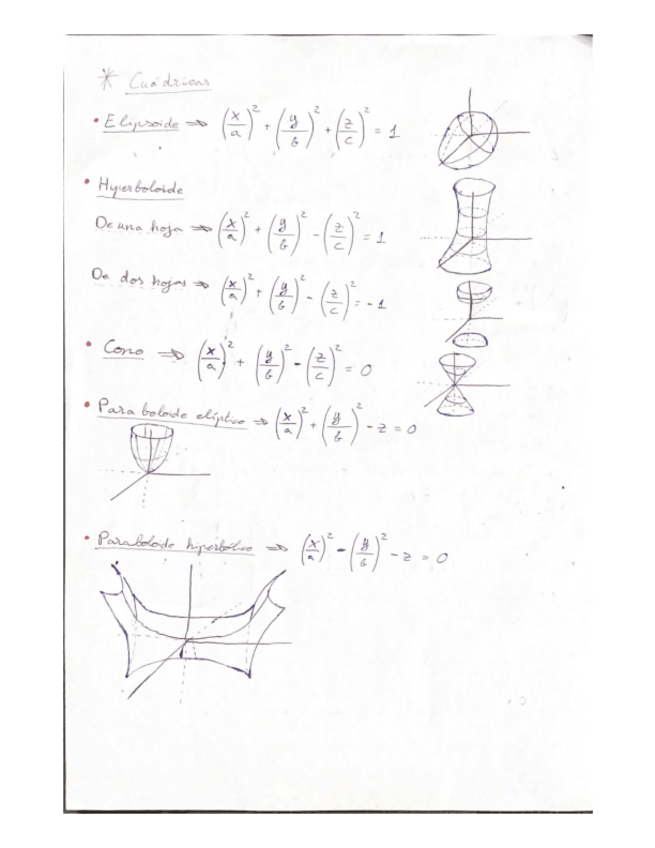 * Cuádricas
• Elipsoide ⇒ (x/a)² + (y/b)² + (z/c)² = 1
• Hyperboloide
De una hoja ⇒ (x/a)² + (y/b)² - (z/c)² = 1
De dos hojas ⇒ (x/a)² + (y/b)² - (z/c)² = -1
• Cono ⇒ (x/a)² + (y/b)² - (z/c)² = 0
• Paraboloide elíptico ⇒ (x/a)² + (y/b)² - z = 0
• Paraboloide hiperbólico ⇒ (x/a)² - (y/b)² - z = 0